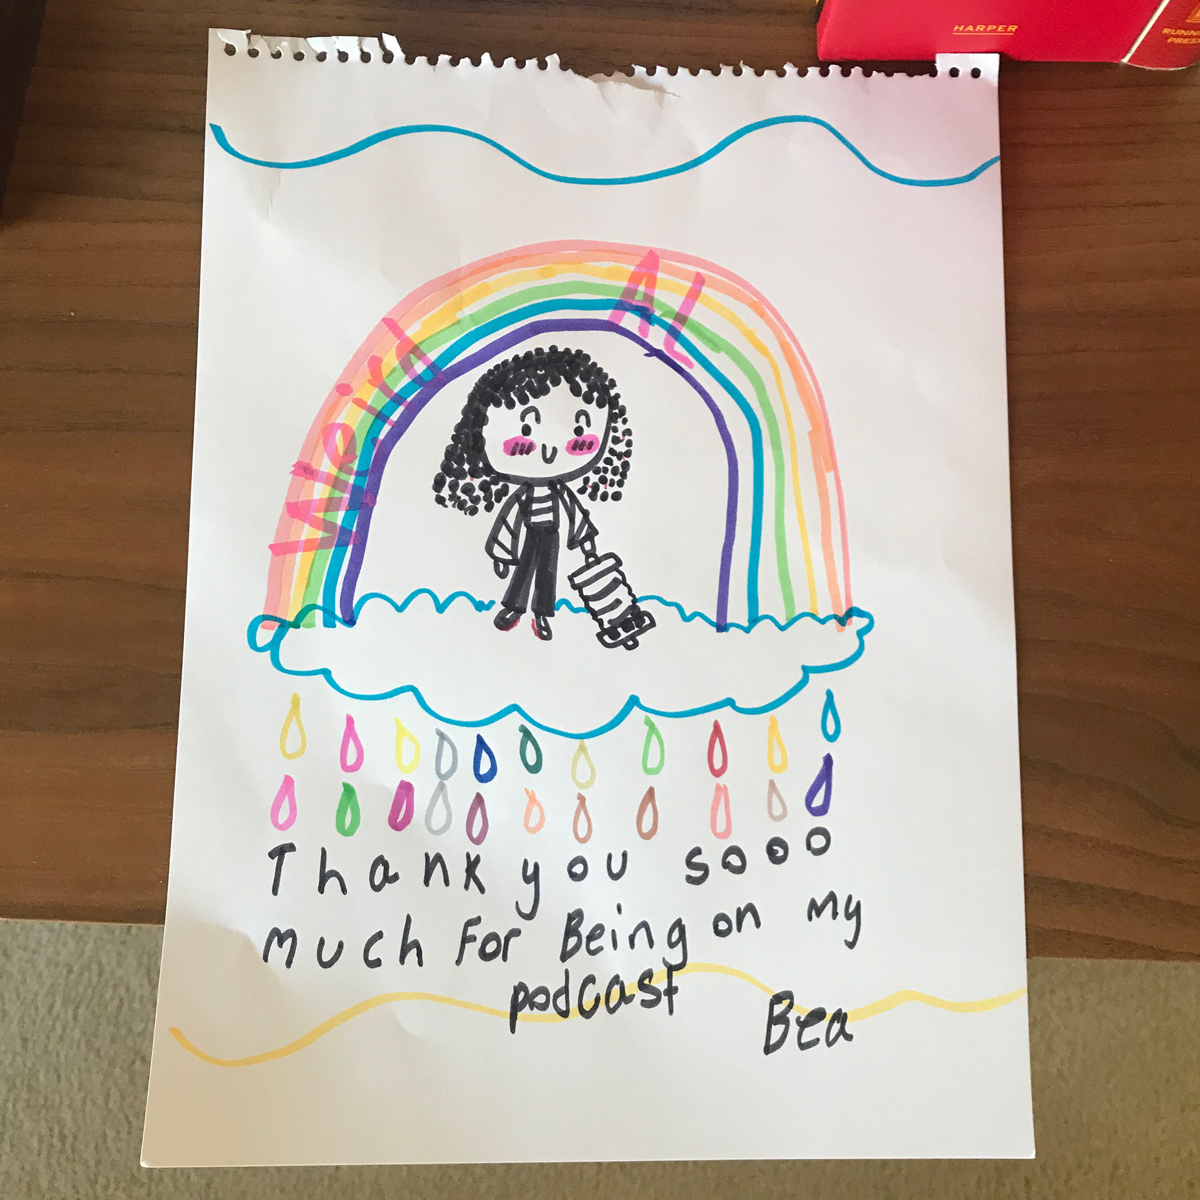 HARPER
RUNNING
PRESS
Weird AL
Thank you sooo
much For Being on my
podcast
Bea